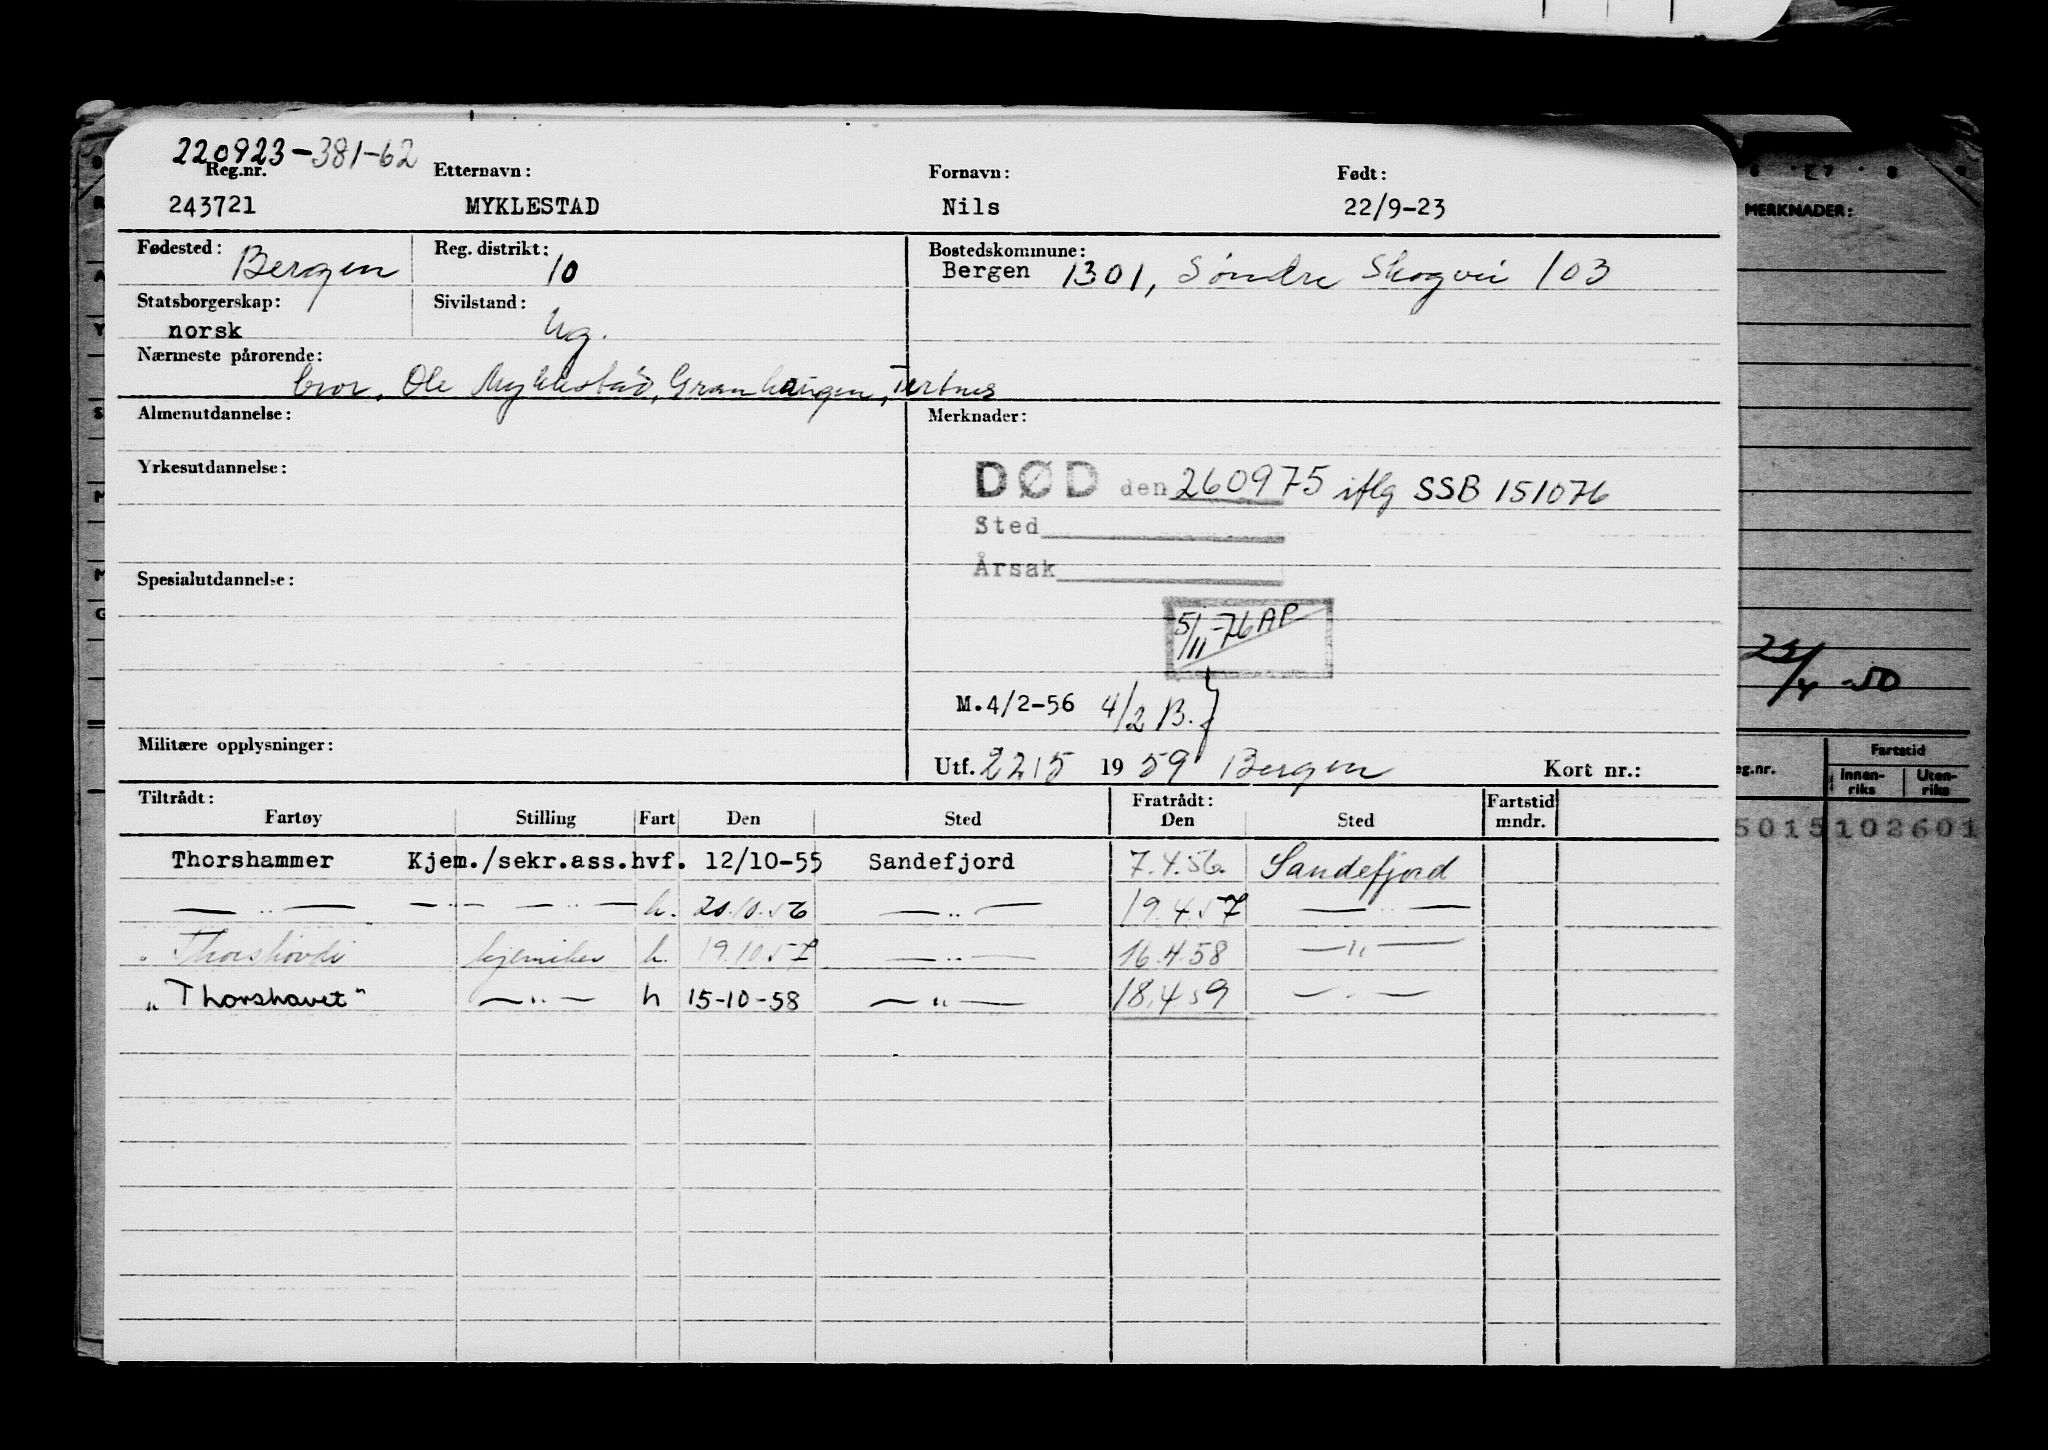 220923-381-62
Reg.nr. Etternavn: Fornavn: Født:
243721 MYKLESTAD Nils 22/9-23
MERKNADER:
Fødested: Bergen Reg. distrikt: 10 Bostedskommune:
Bergen 1301, Søndre Skogvei 103
Statsborgerskap: Sivilstand:
norsk Ug.
Nærmeste pårørende:
bror, Ole Myklestad, Granhaugen, Tertnes
Almenutdannelse: Merknader:
Yrkesutdannelse:
DØD den 260975 iflg SSB 151076
Sted
Årsak
Spesialutdannelse:
5/11-76 AP
25/4-50
M.4/2-56 4/2 B.
Militære opplysninger:
Utf. 2215 1959 Bergen Kort nr.:
Fartstid
eg.nr. Innen-riks Uten-riks
Tiltrådt: Fratrådt: Fartstid
Fartøy Stilling Fart Den Sted Den Sted mndr.
5015102601
Thorshammer Kjem./sekr.ass.hvf. 12/10-55 Sandefjord 7.4.56. Sandefjord
— „ — — „ — — „ — h. 20.10.56 — „ — 19.4.57 — „ —
„ Thorshövdi kjemiker h. 19.10.57 — „ — 16.4.58 — „ —
„Thorshavet" — „ — h 15-10-58 — „ — 18.4.59 — „ —